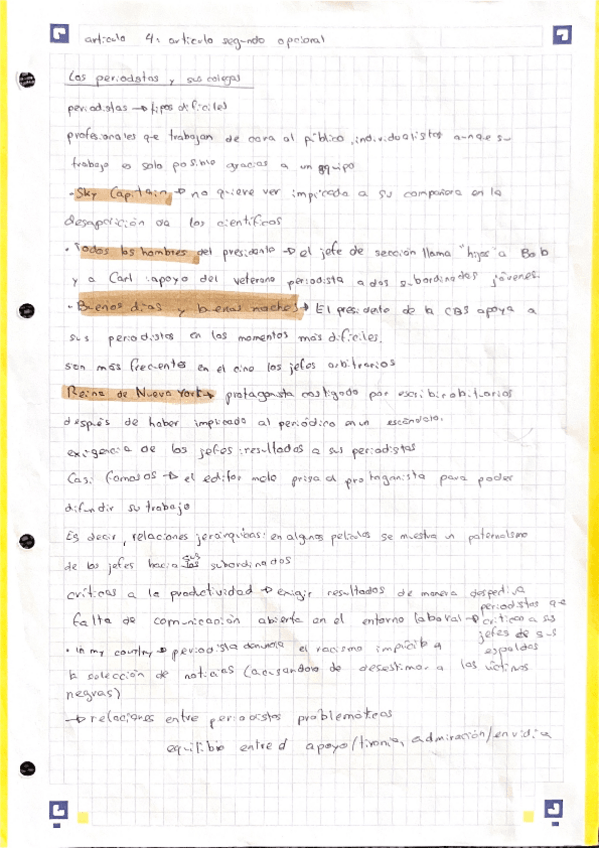 articulo 4: articulo segundo opcional
Los periodistas y sus colegas
periodistas → tipos dificiles
profesionales que trabajan de cara al público, individualistas aunque su
trabajo es solo posible gracias a un equipo
- Sky Captain → no quiere ver implicada a su compañera en la
desaparición de los científicos
• Todos los hombres del presidente → el jefe de sección llama "hijos" a Bob
y a Carl: apoyo del veterano periodista a dos subordinados jóvenes.
- Buenos días y buenas noches → El presidente de la CBS apoya a
sus periodistas en los momentos más difíciles.
son más frecuentes en el cine los jefes arbitrarios
Reina de Nueva York → protagonista castigado por escribir obituarios
después de haber implicado al periódico en un escándalo.
exigencia de los jefes: resultados a sus periodistas
Casi famosos → el editor mete prisa al protagonista para poder
difundir su trabajo
Es decir, relaciones jerárquicas: en algunas películas se muestra un paternalismo
de los jefes hacia sus subordinados
críticas a la productividad → exigir resultados de manera despectiva
falta de comunicación abierta en el entorno laboral → periodistas que
critica a sus
jefes de sus
espaldas
• In my country → periodista denuncia el racismo implícito a
la selección de noticias (acusandola de desestimar a las víctimas
negras)
→ relaciones entre periodistas problemáticas
equilibio entre el apoyo/tiranía, admiración/envidia